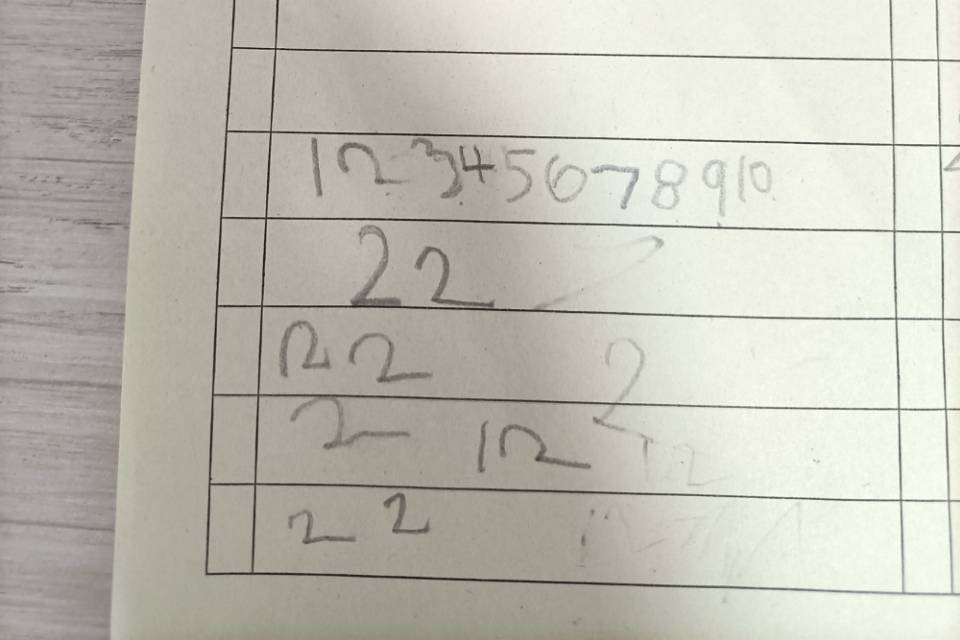 12345678910
22
22 2
2 12 12
22